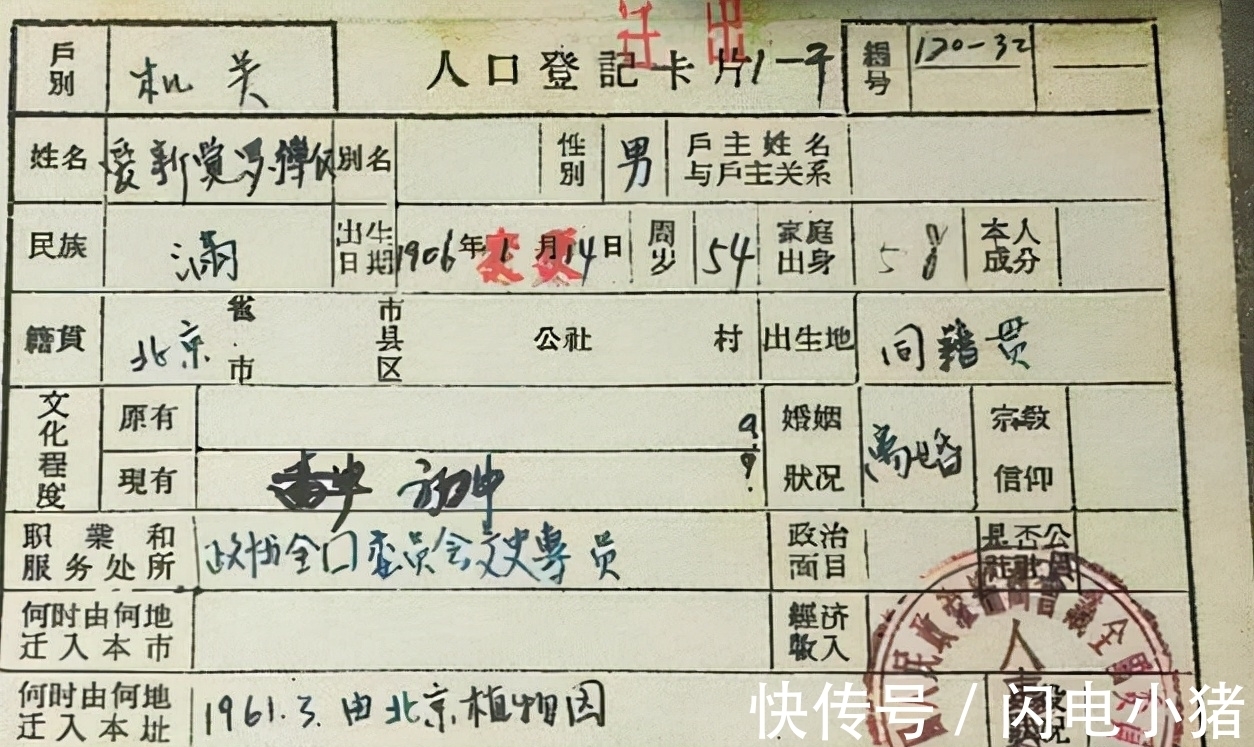 迁出
戶別 机关 人口登記卡片1一平 編号 120-32
姓名 爱新觉罗 別名 性別 男 戶主姓名
与戶主关系
民族 满 出生日期 1906年1月14日 周岁 54 家庭出身 58 本人成分
变更
籍貫 北京 省市 市县区 公社 村 出生地 同籍贯
文化程度 原有 婚姻狀况 离婚 宗教信仰
現有 初中
职業和服务处所 政协全囗委员会文史專员 政治面目 是否公社社員
何时由何地迁入本市 經济收入
何时由何地迁入本址 1961.3.由北京植物园
快传号/闪电小猪